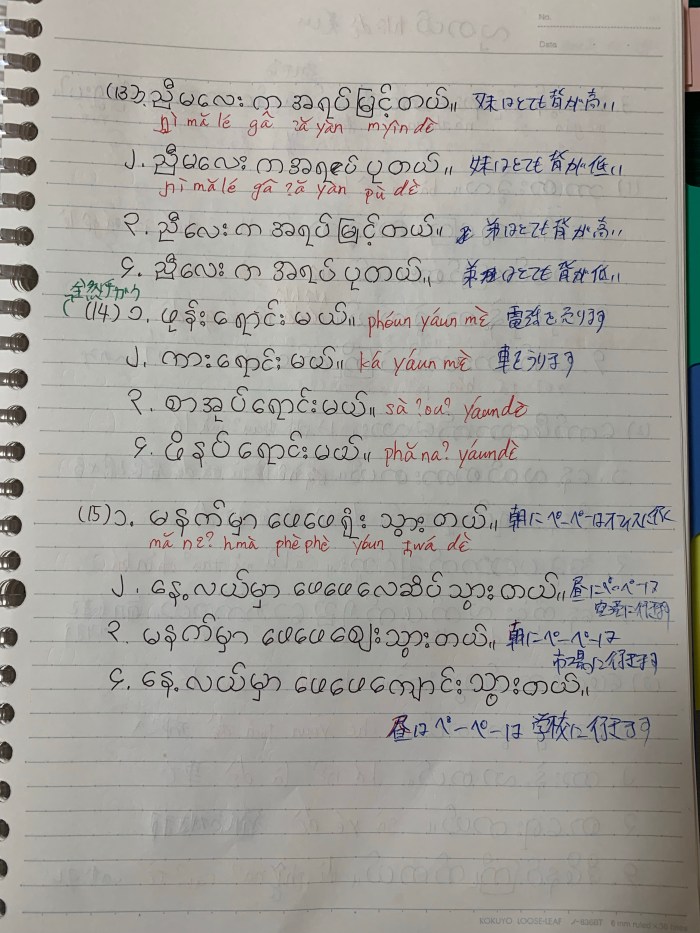 No.
Date
(13)၁. ညီမလေး က အရပ် မြင့် တယ်။ 妹はとても背が高い
ɲì mă lé gâ ʔă yàn myîn dè
၂. ညီမလေး က အရပ် ပု တယ်။ 妹はとても背が低い
ɲì mă lé gâ ʔă yàn pù dè
၃. ညီလေး က အရပ် မြင့် တယ်။ 弟はとても背が高い
၄. ညီလေး က အရပ် ပု တယ်။ 弟はとても背が低い
全然チガウ
(14)၁. ဖုန်း ရောင်း မယ်။ phóun yáun mè 電話を売ります
၂. ကား ရောင်း မယ်။ ká yáun mè 車をうります
၃. စာအုပ် ရောင်း မယ်။ sà ʔouʔ yáundè
၄. ဖိနပ် ရောင်း မယ်။ phănaʔ yáundè
(15)၁. မနက်မှာ ဖေဖေ ရုံး သွား တယ်။ 朝にペーペーはオフィスに行く
mă nɛʔ hmà phèphè yóun ṯwá dè
၂. နေ့လယ်မှာ ဖေဖေ လေဆိပ် သွား တယ်။ 昼にペーペーは
空港に行きます
၃. မနက်မှာ ဖေဖေ ဈေး သွား တယ်။ 朝にペーペーは
市場に行きます
၄. နေ့လယ်မှာ ဖေဖေ ကျောင်း သွား တယ်။
昼はペーペーは学校に行きます
KOKUYO LOOSE-LEAF